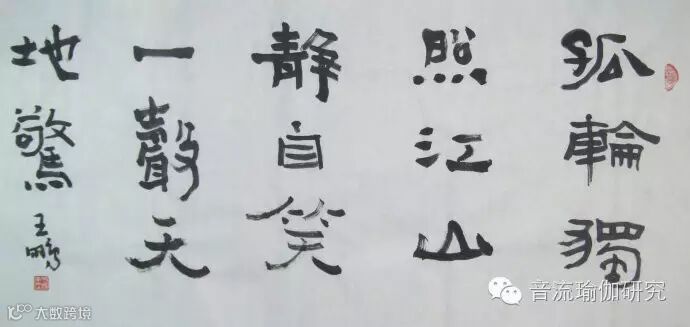 孤輪獨
照江山
静自笑
一聲天
地驚
王鹏
音流瑜伽研究
大数跨境